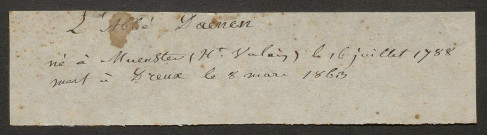 L'Abbé Daenen
né à Muenster (Ht Valais) le 16 juillet 1788
mort à Dreux le 8 mars 1863